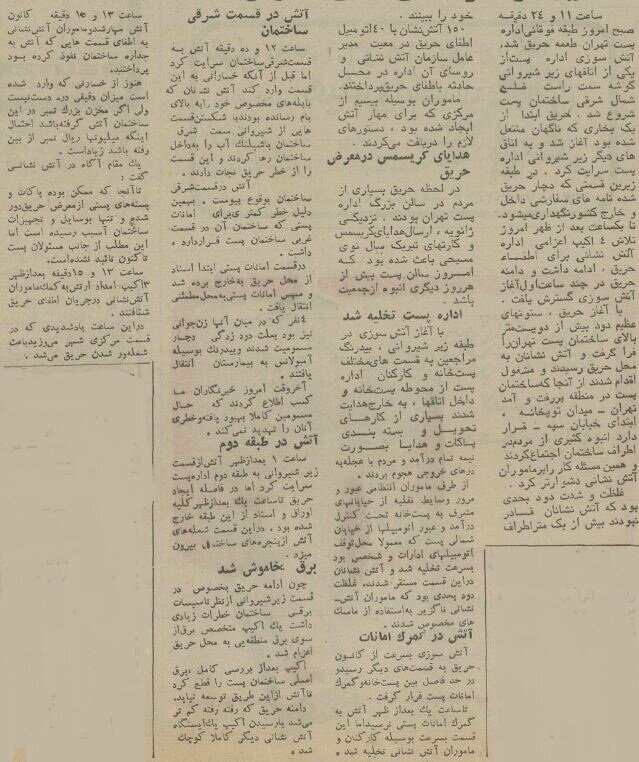 ساعت ۱۱ و ۲۴ دقیقه
صبح امروز طبقه فوقانی اداره
پست تهران طعمه حریق شد.
آتش سوزی اداره پست از
یکی از اتاقهای زیر شیروانی
گوشه سمت راست ضلع
شمال شرقی ساختمان پست
شروع شد. حریق ابتدا از
یک بخاری که ناگهان مشتعل
شده بود آغاز شد و به اتاق
های دیگر زیر شیروانی اداره
پست سرایت کرد. در طبقه
زیرین قسمتی که دچار حریق
شده نامه های سفارشی داخل
و خارج کشور نگهداری میشود.
تا یکساعت بعد از ظهر امروز
تلاش ۴ اکیپ اعزامی اداره
آتش نشانی برای اطفاء
حریق، ادامه داشت و دامنه
حریق در چند ساعت اول آغاز
آتش سوزی گسترش یافت.
با آغاز حریق، ستونهای
عظیم دود بیش از دویست متر
بالای ساختمان پست تهران را
فرا گرفت و آتش نشانان به
محل حریق رسیدند و مشغول
اقدام شدند از آنجا که ساختمان
پست در منطقه پررفت و آمد
تهران ـ میدان توپخانه،
ابتدای خیابان سپه ـ قرار
دارد انبوه کثیری از مردم در
اطراف ساختمان اجتماع کردند
و همین مسئله کار را بر ماموران
آتش نشانی دشوارتر کرد.
غلظت و شدت دود بحدی
بود که آتش نشانان قادر
نبودند بیش از یک متر اطراف
خود را ببینند.
۱۵۰ آتش نشان با ۴۰ اتومبیل
اطفای حریق در معیت مدیر
عامل سازمان آتش نشانی و
روسای آن اداره در محل
حادثه باطفای حریق پرداختند.
ماموران بوسیله بیسیم از
مرکزی که برای مهار آتش
ایجاد شده بود، دستورهای
لازم را دریافت می‌کردند.
هدایای کریسمس در معرض
حریق
در لحظه حریق بسیاری از
مردم در سالن بزرگ اداره
پست تهران بودند. نزدیکی
ژانویه، ارسال هدایای کریسمس
و کارتهای تبریک سال نوی
مسیحی باعث شده بود که
امروز سالن پست بیش از
هر روز دیگری انبوه از جمعیت
باشد.
اداره پست تخلیه شد
با آغاز آتش سوزی در
طبقه زیر شیروانی، بیدرنگ
مراجعین به قسمت های مختلف
پست‌خانه و کارکنان اداره
پست از محوطه پست‌خانه و
داخل اتاقها، به خارج هدایت
شدند بسیاری از کارهای
تحویل و بسته بندی
پاکات و هدایا بصورت
نیمه تمام درآمد و مردم با عجله به
درهای خروجی هجوم بردند.
از طرف ماموران انتظامی عبور و
مرور وسایط نقلیه از خیابانهای
مشرف به پست‌خانه تحت کنترل
درآمد و عبور اتومبیلها از خیابان
شمالی پست که معمولا محل توقف
اتومبیلهای ادارات و شخصی بود
بسرعت تخلیه شد و آتش نشانان
در این قسمت مستقر شدند. غلظت
دود بحدی بود که ماموران آتش‌ـ
نشانی ناگزیر به استفاده از ماسک
های مخصوص شدند.
آتش در گمرک امانات
آتش سوزی بسرعت از کانون
حریق به قسمت‌های دیگر رسید و
در حد فاصل بین پست‌خانه و گمرک
امانات پست قرار گرفت.
تا ساعت یک بعد از ظهر آتش به
گمرک امانات پستی نرسید اما این
قسمت بسرعت بوسیله کارکنان و
ماموران آتش نشانی تخلیه شد.
آتش در قسمت شرقی
ساختمان
ساعت ۱۲ و ده دقیقه آتش به
قسمت شرقی ساختمان سرایت کرد
اما قبل از آنکه خساراتی به این
قسمت وارد کند آتش نشانان که
با پله‌های مخصوص خود را به بالای
بام رسانده بودند با شکستن قسمت
هایی از شیروانی سمت شرقی
ساختمان با شیلنگ آب را به داخل
ساختمان رها کردند و این قسمت
را از خطر حریق نجات دادند.
آتش در قسمت شرقی
ساختمان بوقوع پیوست. بهمین
دلیل خطر کمتری برای امانات
پستی که ساختمان آن در قسمت
غربی ساختمان پست قرار دارد،
داشت.
در قسمت امانات پستی ابتدا اسناد
از محل حریق به خارج برده شد
و سپس امانات پستی به محل مطمئنی
انتقال یافت.
۴ نفر که در میان آنها زن جوانی
نیز بود بعلت دود زدگی دچار
مسمومیت شدند و بیدرنگ بوسیله
آمبولانس به بیمارستان انتقال
یافتند.
آخر وقت امروز خبرنگاران ما
کسب اطلاع کردند که حال
مسمومین کاملا بهبود یافته و خطری
آنان را تهدید نمی‌کند.
آتش در طبقه دوم
ساعت ۱ بعد از ظهر آتش از قسمت
زیر شیروانی به طبقه دوم اداره پست
سرایت کرد اما در فاصله ایجاد
حریق تا ساعت یک بعد از ظهر کلیه
اوراق و اسناد از این طبقه خارج
شده بود. در این قسمت شعله‌های
آتش از پنجره‌های ساختمان بیرون
میزد.
برق خاموش شد
چون ادامه حریق بخصوص در
قسمت زیر شیروانی از نظر تاسیسات
برقی ساختمان خطرات زیادی
داشت یک اکیپ متخصص برق از
سوی برق منطقه‌یی به محل حریق
اعزام شد.
اکیپ بعد از بررسی کامل، برق
اصلی ساختمان پست را قطع کرد
تا آتش از این طریق توسعه نیابد.
دامنه حریق که رفته رفته کم تر
می‌شد با رسیدن اکیپ یک ایستگاه
آتش نشانی دیگر کاملا کوچک
شد.
ساعت ۱۳ و ۱۵ دقیقه کانون
آتش مهار شد و ماموران آتش نشانی
به اطفای قسمت هایی که آتش به
جداره ساختمان نفوذ کرده بود
پرداختند.
هنوز از خسارتی که وارد شده
است میزان دقیقی در دست نیست
ولی اگر مخزن بزرگ تمبر در این
ساختمان آتش گرفته باشد احتمال
اینکه میلیونها ریال تمبر از بین
رفته باشد زیاد است.
یک مقام آگاه در آتش نشانی
گفت:
تا آنجا که ممکن بوده پاکات و
بسته‌های پستی از معرض حریق دور
شده و تنها بوسایل و تجهیزات
ساختمان آسیب رسیده است اما
این مطلب از جانب مسئولان پست
تاکنون تائید نشده است.
ساعت ۱۳ و ۱۵ دقیقه بعد از ظهر
۳ اکیپ امداد ارتش به کمک ماموران
آتش نشانی در جریان اطفای حریق
شتافتند.
در این ساعت باد شدیدی که در
قسمت مرکزی شهر می‌وزید باعث
شعله‌ور شدن حریق می‌شد.